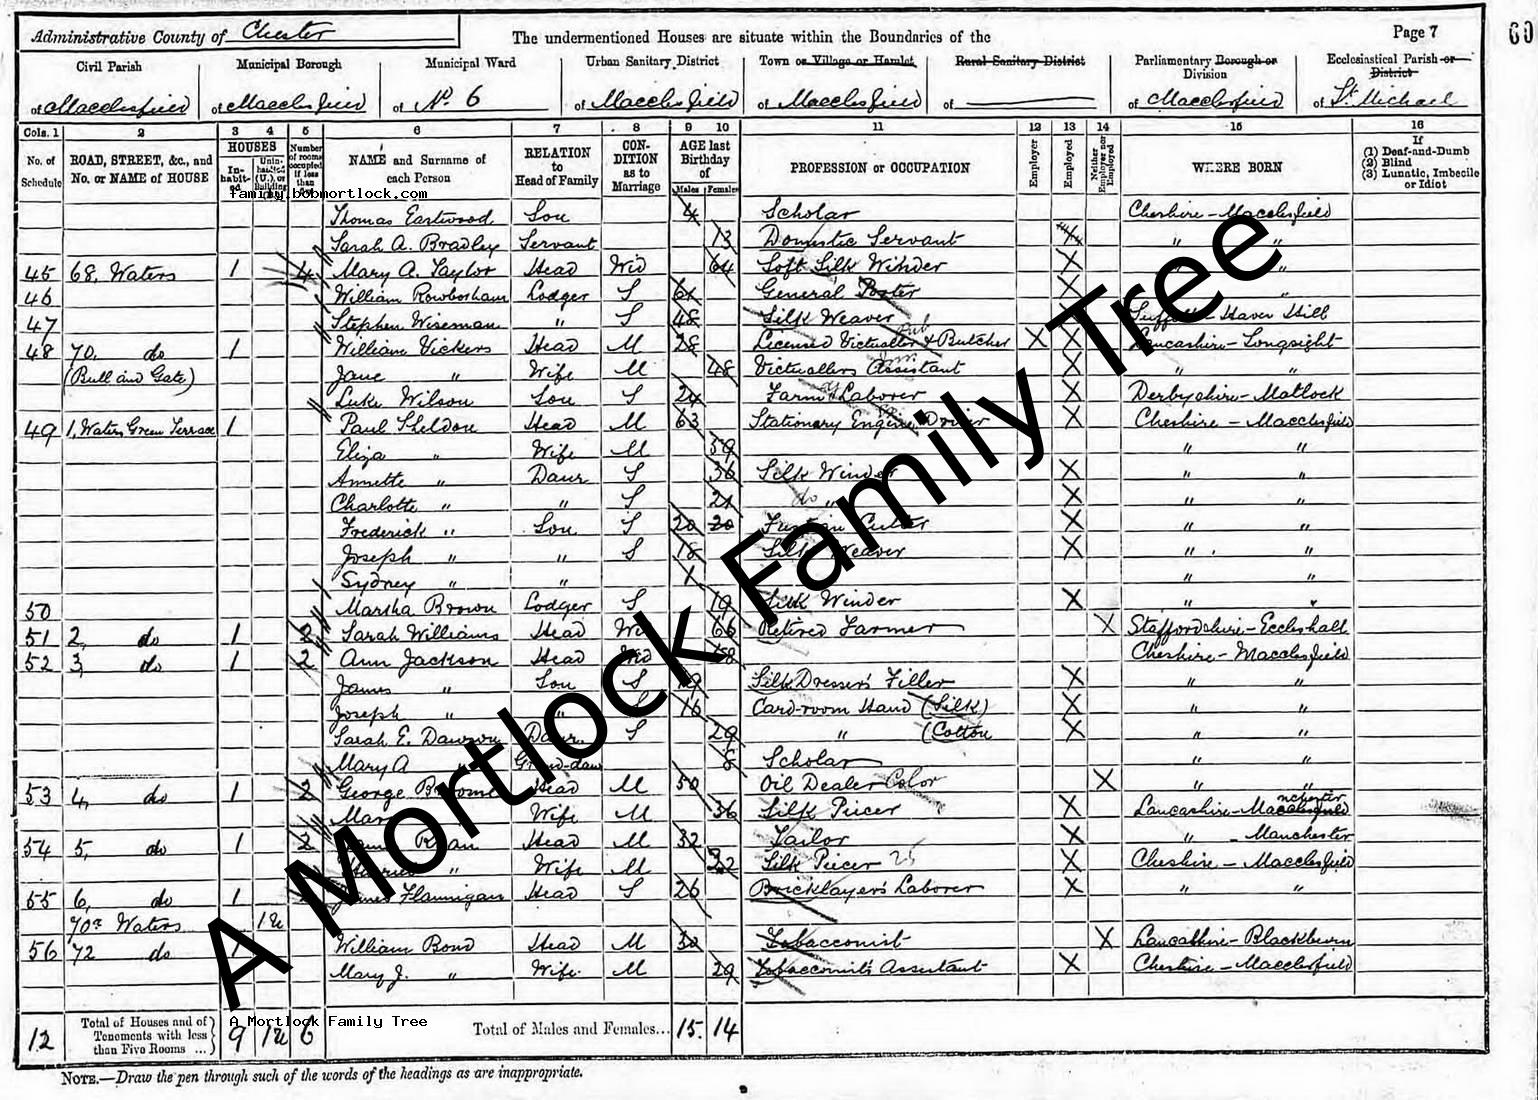 60
Administrative County of Chester The undermentioned Houses are situate within the Boundaries of the Page 7
Civil Parish Municipal Borough Municipal Ward Urban Sanitary District Town or Village or Hamlet Rural Sanitary District Parliamentary Borough or Division Ecclesiastical Parish or District
of Macclesfield of Macclesfield of No. 6 of Macclesfield of Macclesfield of of Macclesfield of St. Michael
Cols. 1 2 3 4 5 6 7 8 9 10 11 12 13 14 15 16
No. of Schedule ROAD, STREET, &c., and No. or NAME of HOUSE HOUSES Inhabited Uninhabited (U.), or Building Number of rooms occupied if less than NAME and Surname of each Person RELATION to Head of Family CONDITION as to Marriage AGE last Birthday of Males Females PROFESSION or OCCUPATION Employer Employed Neither Employer nor Employed WHERE BORN If (1) Deaf-and-Dumb (2) Blind (3) Lunatic, Imbecile or Idiot
family.bobmortlock.com
Thomas Eastwood Son 4 Scholar Cheshire - Macclesfield
Sarah A. Bradley Servant 13 Domestic Servant " "
45 68, Waters 1 4 Mary A. Taylor Head Wid 64 Soft Silk Winder X "
46 William Rowbotham Lodger S 61 General Porter X "
47 Stephen Wiseman " S 48 Silk Weaver X Suffolk - Haver Hill
48 70, do 1 William Vickers Head M 28 Licensed Victualler & Butcher X X Lancashire - Longsight
(Bull and Gate) Jane " Wife M 48 Victuallers Assistant X " "
Luke Wilson Son S 24 Farm Laborer X Derbyshire - Matlock
49 1, Waters Green Terrace 1 Paul Sheldon Head M 63 Stationary Engine Driver X Cheshire - Macclesfield
Eliza " Wife M 59 " "
Annette " Daur S 36 Silk Winder X " "
Charlotte " " S 21 do " X " "
Frederick " Son S 20 20 Fustian Cutter X " "
Joseph " " S 18 Silk Weaver X " "
Sydney " " 1 " "
50 Martha Brown Lodger S 19 Silk Winder X " "
51 2, do 1 2 Sarah Williams Head Wid 66 Retired Farmer X Staffordshire - Eccleshall
52 3, do 1 2 Ann Jackson Head Wid 58 Cheshire - Macclesfield
James " Son S 19 Silk Dresser's Filler X " "
Joseph " " S 16 Card-room Hand (Silk) X " "
Sarah E. Dawson Daur. S 29 " (Cotton X " "
Mary A " Grand-daur 8 Scholar " "
53 4, do 1 2 George Head M 50 Oil Dealer Color X " "
Mary Wife M 36 Silk Piecer X Lancashire - Manchester
54 5, do 1 2 Head M 32 Tailor X " - Manchester
" Wife M 22 Silk Piecer 25 X Cheshire - Macclesfield
55 6, do 1 James Flannigan Head S 26 Bricklayer's Laborer X " "
70a Waters 1u
56 72 do 1 William Bond Head M 30 Tobacconist X Lancashire - Blackburn
Mary J. " Wife M 29 Tobacconist's Assistant X Cheshire - Macclesfield
A Mortlock Family Tree
A Mortlock Family Tree
12 Total of Houses and of Tenements with less than Five Rooms ... 9 1u 6 Total of Males and Females... 15. 14
NOTE.—Draw the pen through such of the words of the headings as are inappropriate.